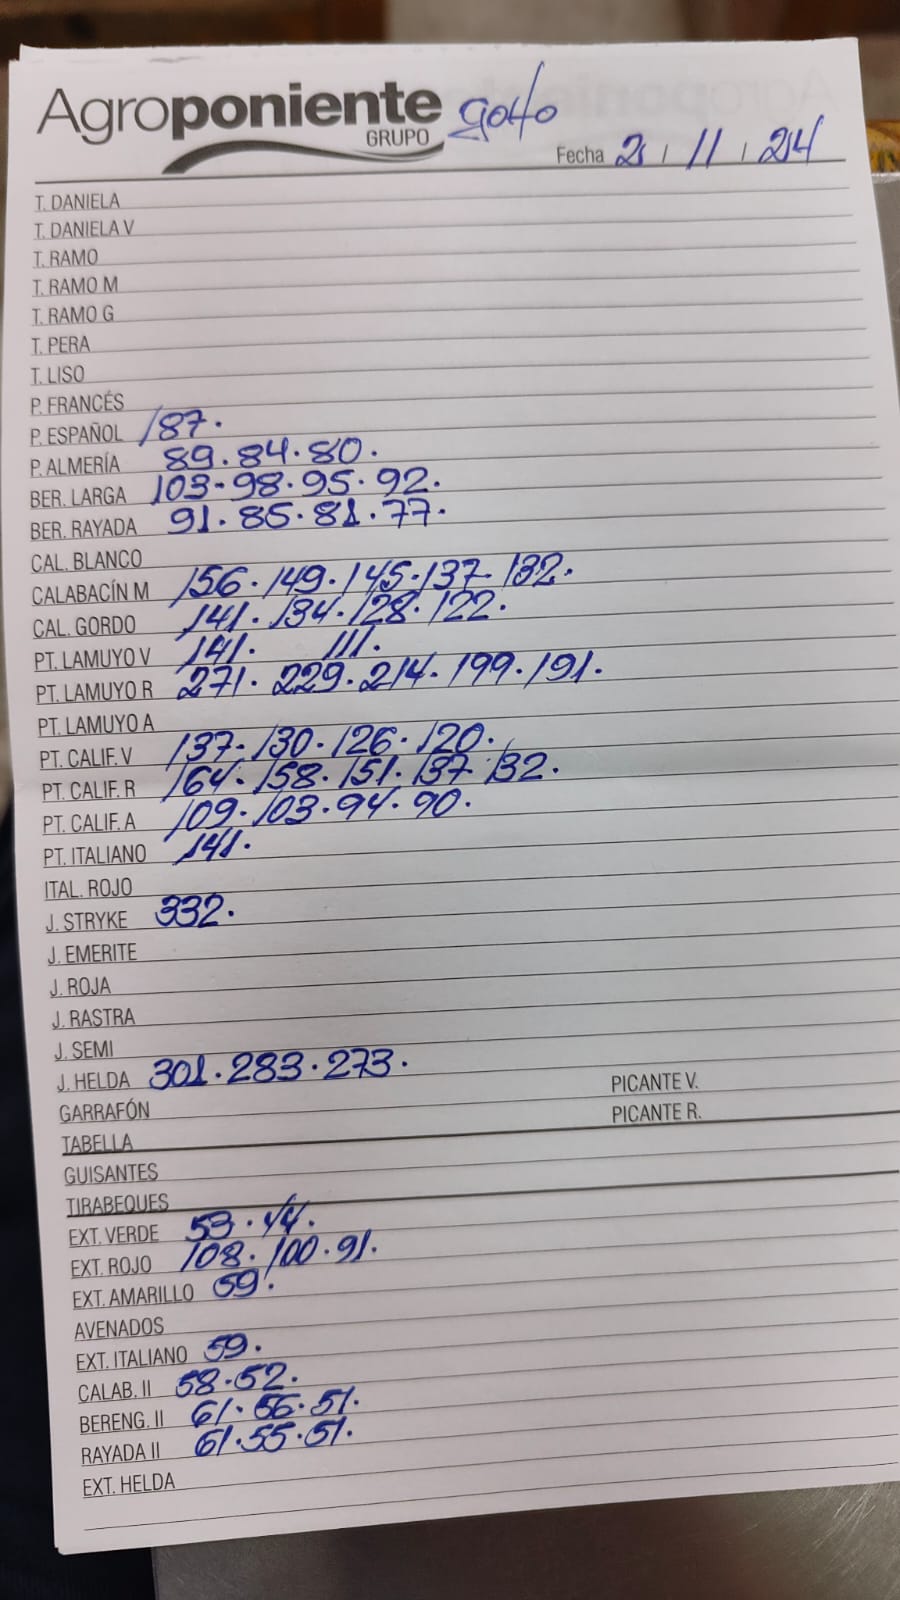 Agroponiente golfo
GRUPO
Fecha 21 / 11 / 24
T. DANIELA
T. DANIELA V
T. RAMO
T. RAMO M
T. RAMO G
T. PERA
T. LISO
P. FRANCÉS
P. ESPAÑOL 187.
P. ALMERÍA 89.84.80.
BER. LARGA 103-98.95.92.
BER. RAYADA 91.85.81.77.
CAL. BLANCO
CALABACÍN M 156.149.145.137.132.
CAL. GORDO 141.134.128.122.
PT. LAMUYO V 141. 111.
PT. LAMUYO R 271.229.214.199.191.
PT. LAMUYO A
PT. CALIF. V 137-130.126.120.
PT. CALIF. R 164.158.151.137 132.
PT. CALIF. A 109.103.94.90.
PT. ITALIANO 141.
ITAL. ROJO
J. STRYKE 332.
J. EMERITE
J. ROJA
J. RASTRA
J. SEMI
J. HELDA 301.283.273.
GARRAFÓN PICANTE V.
TABELLA PICANTE R.
GUISANTES
TIRABEQUES
EXT. VERDE 53.44.
EXT. ROJO 108.100.91.
EXT. AMARILLO 59.
AVENADOS
EXT. ITALIANO 59.
CALAB. II 58.52.
BERENG. II 61.56.51.
RAYADA II 61.55.51.
EXT. HELDA